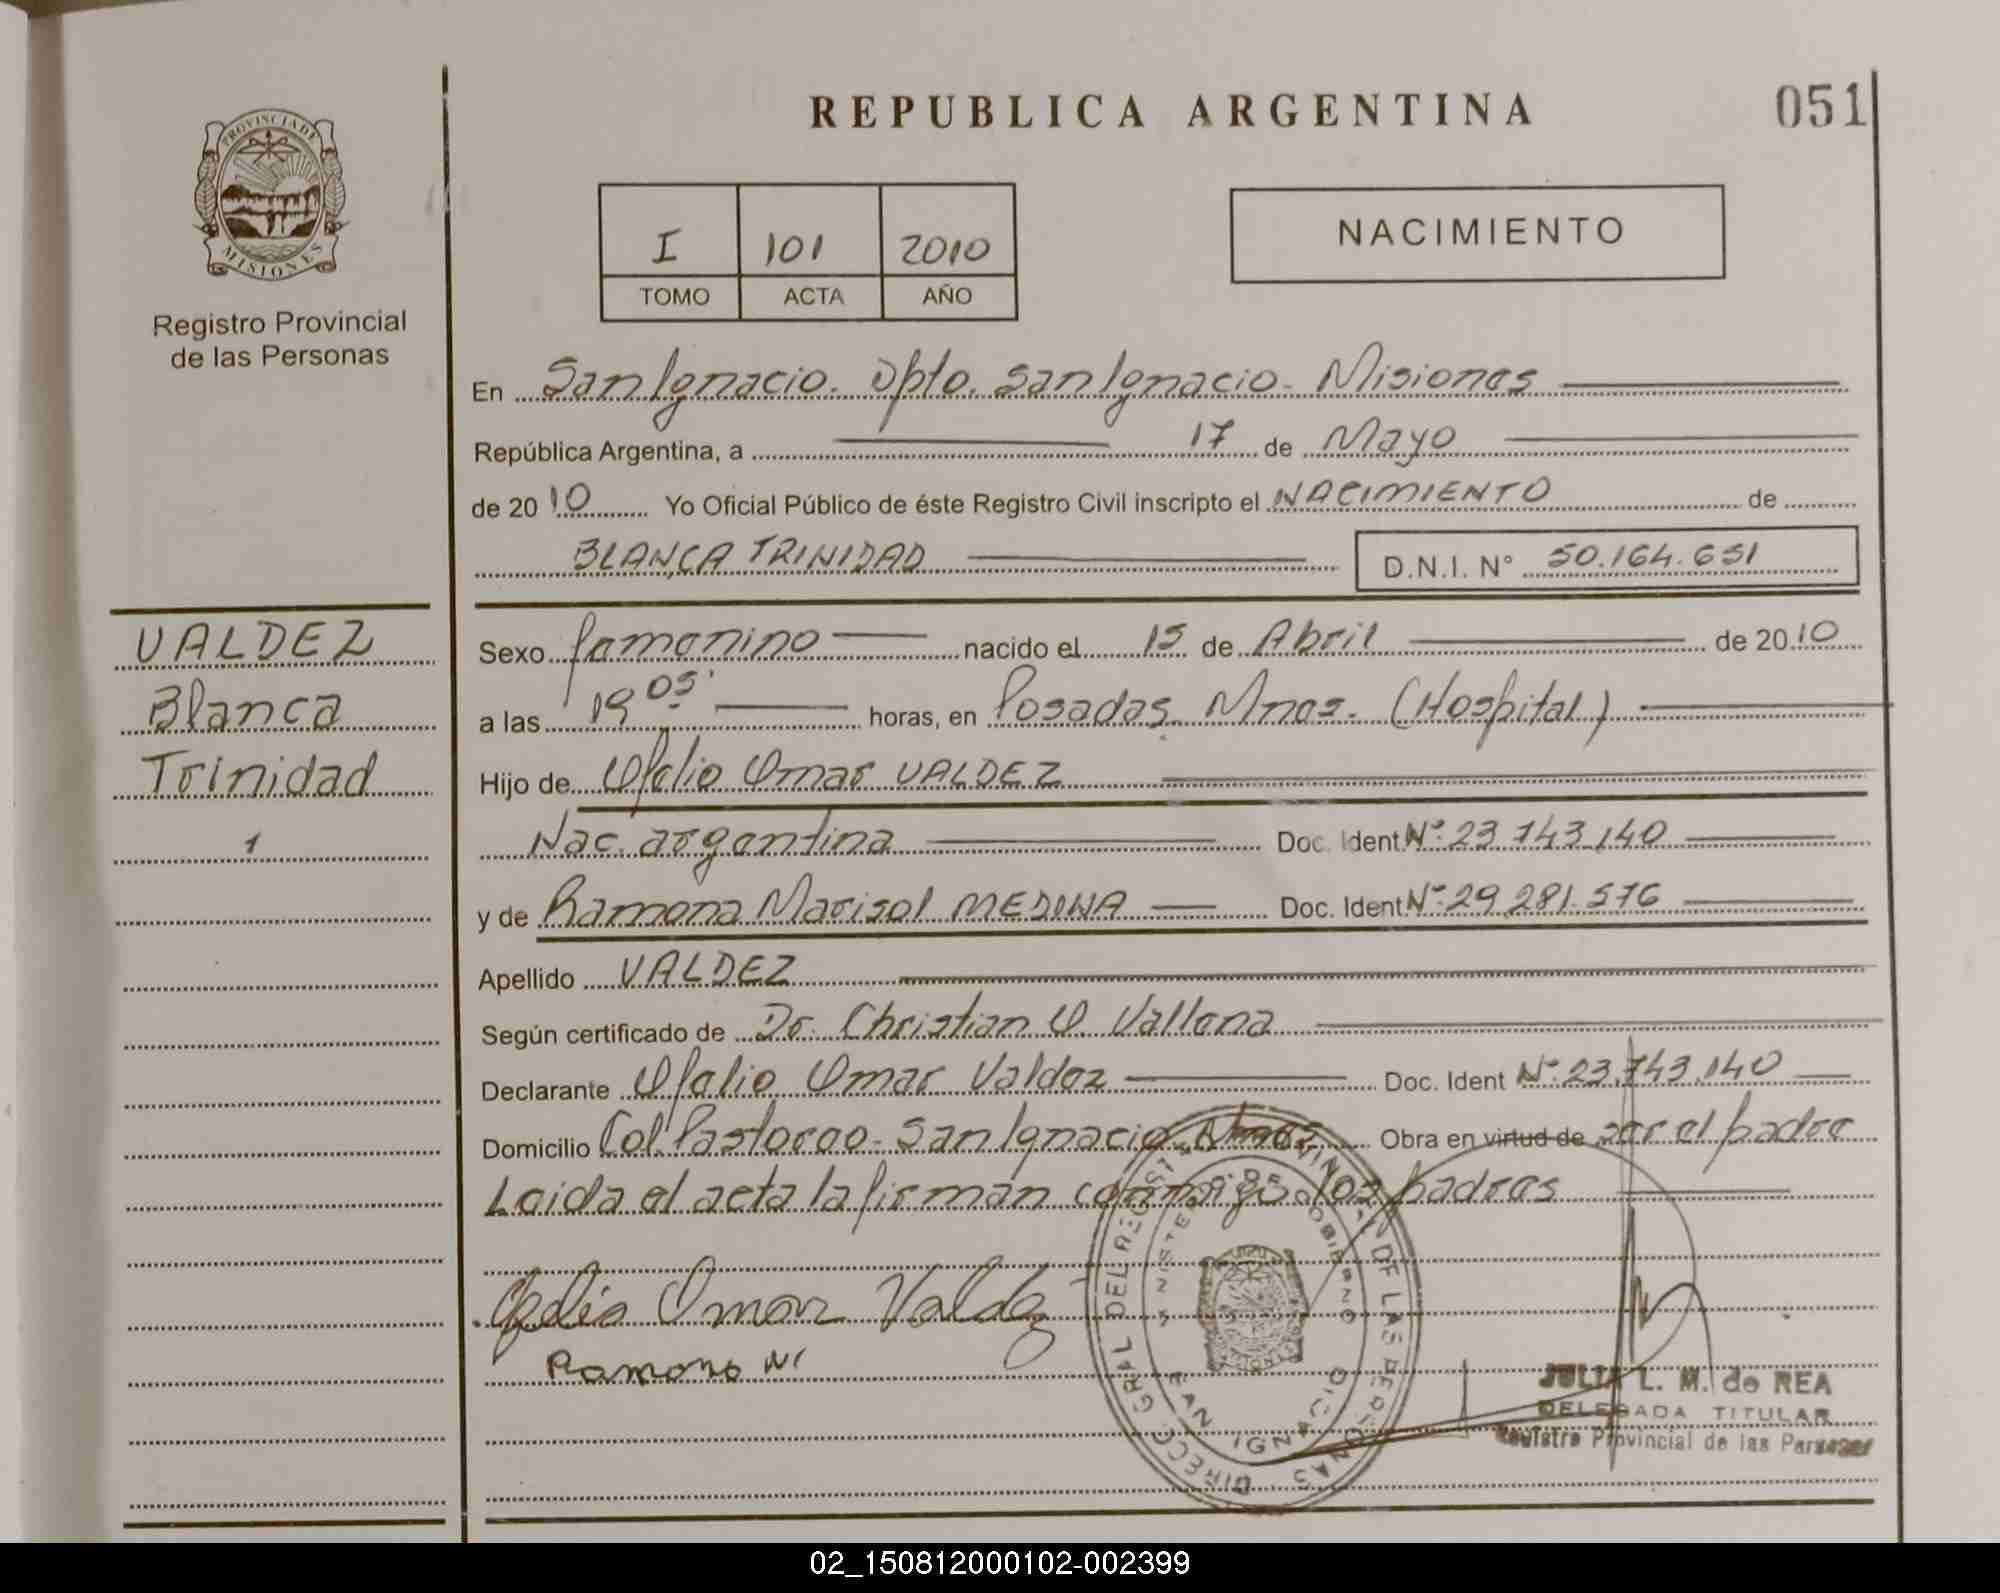 REPUBLICA ARGENTINA
051
PROVINCIA DE
MISIONES
Registro Provincial
de las Personas
I 101 2010
TOMO ACTA AÑO
NACIMIENTO
En San Ignacio. Dpto. San Ignacio. Misiones
República Argentina, a 17 de Mayo
de 2010 Yo Oficial Público de éste Registro Civil inscripto el NACIMIENTO de
BLANCA TRINIDAD D.N.I. N° 50.164.651
VALDEZ
Blanca
Trinidad
1
Sexo femenino nacido el 15 de Abril de 2010
a las 19 05' horas, en Posadas Mnes. (Hospital)
Hijo de Ofelio Omar VALDEZ
Nac. argentina Doc. Ident N° 23.743.140
y de Ramona Marisol MEDINA Doc. Ident N° 29.281.576
Apellido VALDEZ
Según certificado de Dr. Christian O. Vallena
Declarante Ofelio Omar Valdez Doc. Ident N° 23.743.140
Domicilio Col. Pastoreo. San Ignacio Mnes Obra en virtud de ser el padre
Leida el acta la firman conmigo los padres
Ofelio Omar Valdez
Ramona M
DIRECC. GRAL DEL REGISTRO PROVINCIAL DE LAS PERSONAS
MINISTERIO DE GOBIERNO
SAN IGNACIO
JULIA L. M. de REA
DELEGADA TITULAR
Registro Provincial de las Personas
02_150812000102-002399